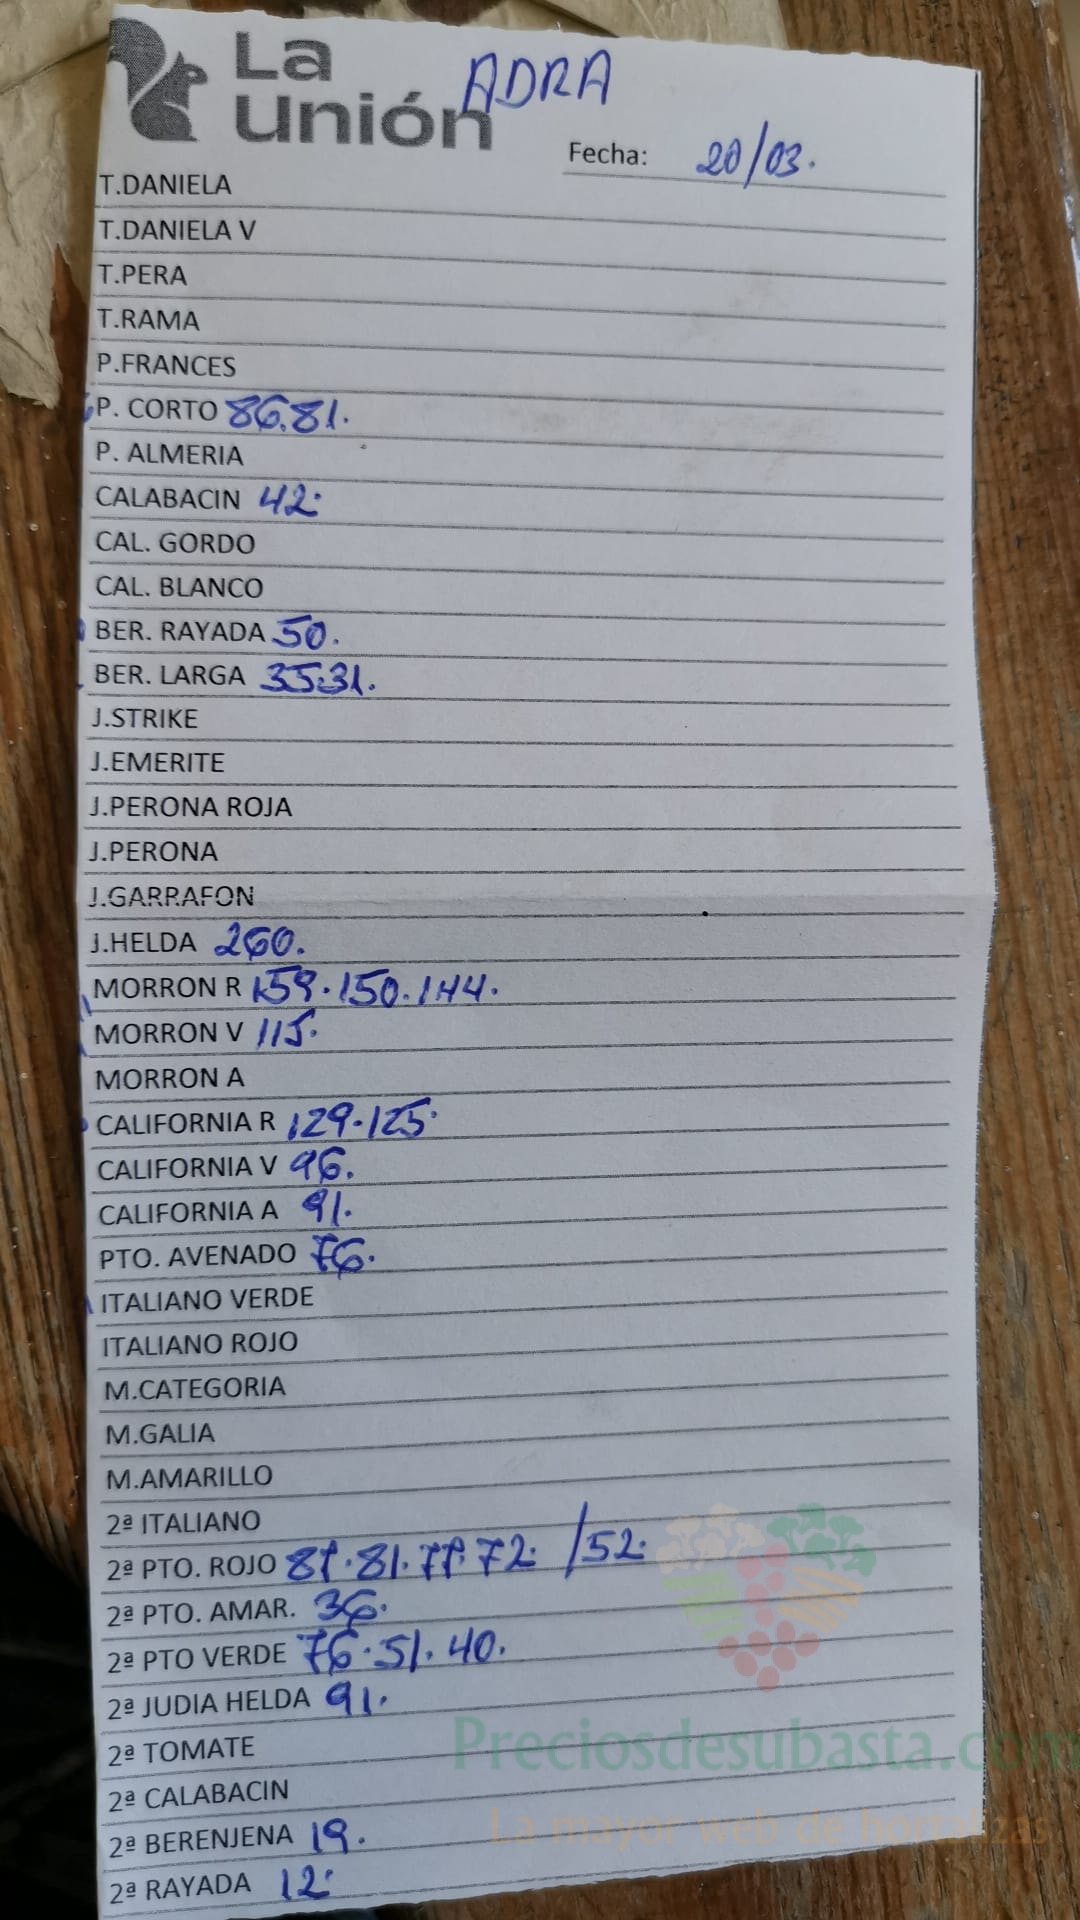 La
Unión ADRA
Fecha: 20/03.
T.DANIELA
T.DANIELA V
T.PERA
T.RAMA
P.FRANCES
P. CORTO 86.81.
P. ALMERIA
CALABACIN 42.
CAL. GORDO
CAL. BLANCO
BER. RAYADA 50.
BER. LARGA 35.31.
J.STRIKE
J.EMERITE
J.PERONA ROJA
J.PERONA
J.GARRAFON
J.HELDA 260.
MORRON R 159.150.144.
MORRON V 115.
MORRON A
CALIFORNIA R 129.125.
CALIFORNIA V 96.
CALIFORNIA A 91.
PTO. AVENADO 76.
ITALIANO VERDE
ITALIANO ROJO
M.CATEGORIA
M.GALIA
M.AMARILLO
2ª ITALIANO
2ª PTO. ROJO 81.77.72. /52.
2ª PTO. AMAR. 36.
2ª PTO VERDE 76.51.40.
2ª JUDIA HELDA 91.
2ª TOMATE
2ª CALABACIN
2ª BERENJENA 19.
2ª RAYADA 12.
Preciosdesubasta.com
La mayor web de hortalizas